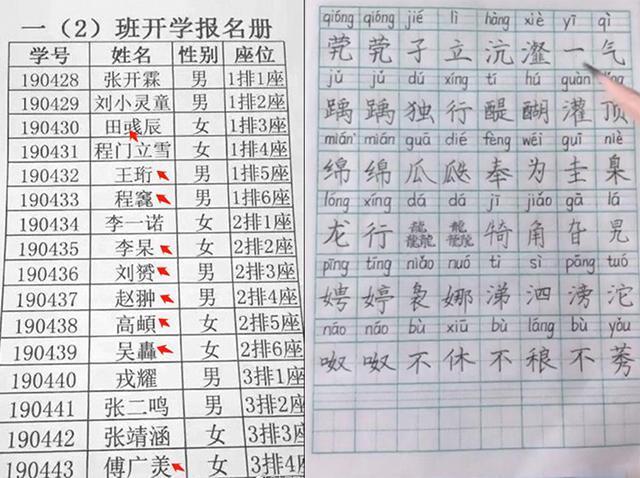 一（2）班开学报名册
学号 姓名 性别 座位
190428 张开霖 男 1排1座
190429 刘小灵童 男 1排2座
190430 田彧辰 女 1排3座
190431 程门立雪 女 1排4座
190432 王珩 男 1排5座
190433 程 男 1排6座
190434 李一诺 女 2排1座
190435 李杲 女 2排2座
190436 刘赟 男 2排3座
190437 赵 男 2排4座
190438 高頔 女 2排5座
190439 吴轟 女 2排6座
190440 戎耀 男 3排1座
190441 张二鸣 男 3排2座
190442 张靖涵 女 3排3座
190443 傅广羙 女 3排4座
qióng qióng jié lì hàng xiè yī qì
茕 茕 孑 立 沆 瀣 一 气
jǔ jǔ dú xíng tí hú guàn dǐng
踽 踽 独 行 醍 醐 灌 顶
mián mián guā dié fèng wéi guī niè
绵 绵 瓜 瓞 奉 为 圭 臬
lóng xíng dá dá jī jiǎo gā lá
龙 行 龘 龘 犄 角 旮 旯
pīng tíng niǎo nuó tì sì pāng tuó
娉 婷 袅 娜 涕 泗 滂 沱
náo náo bù xiū bù láng bù yǒu
呶 呶 不 休 不 稂 不 莠